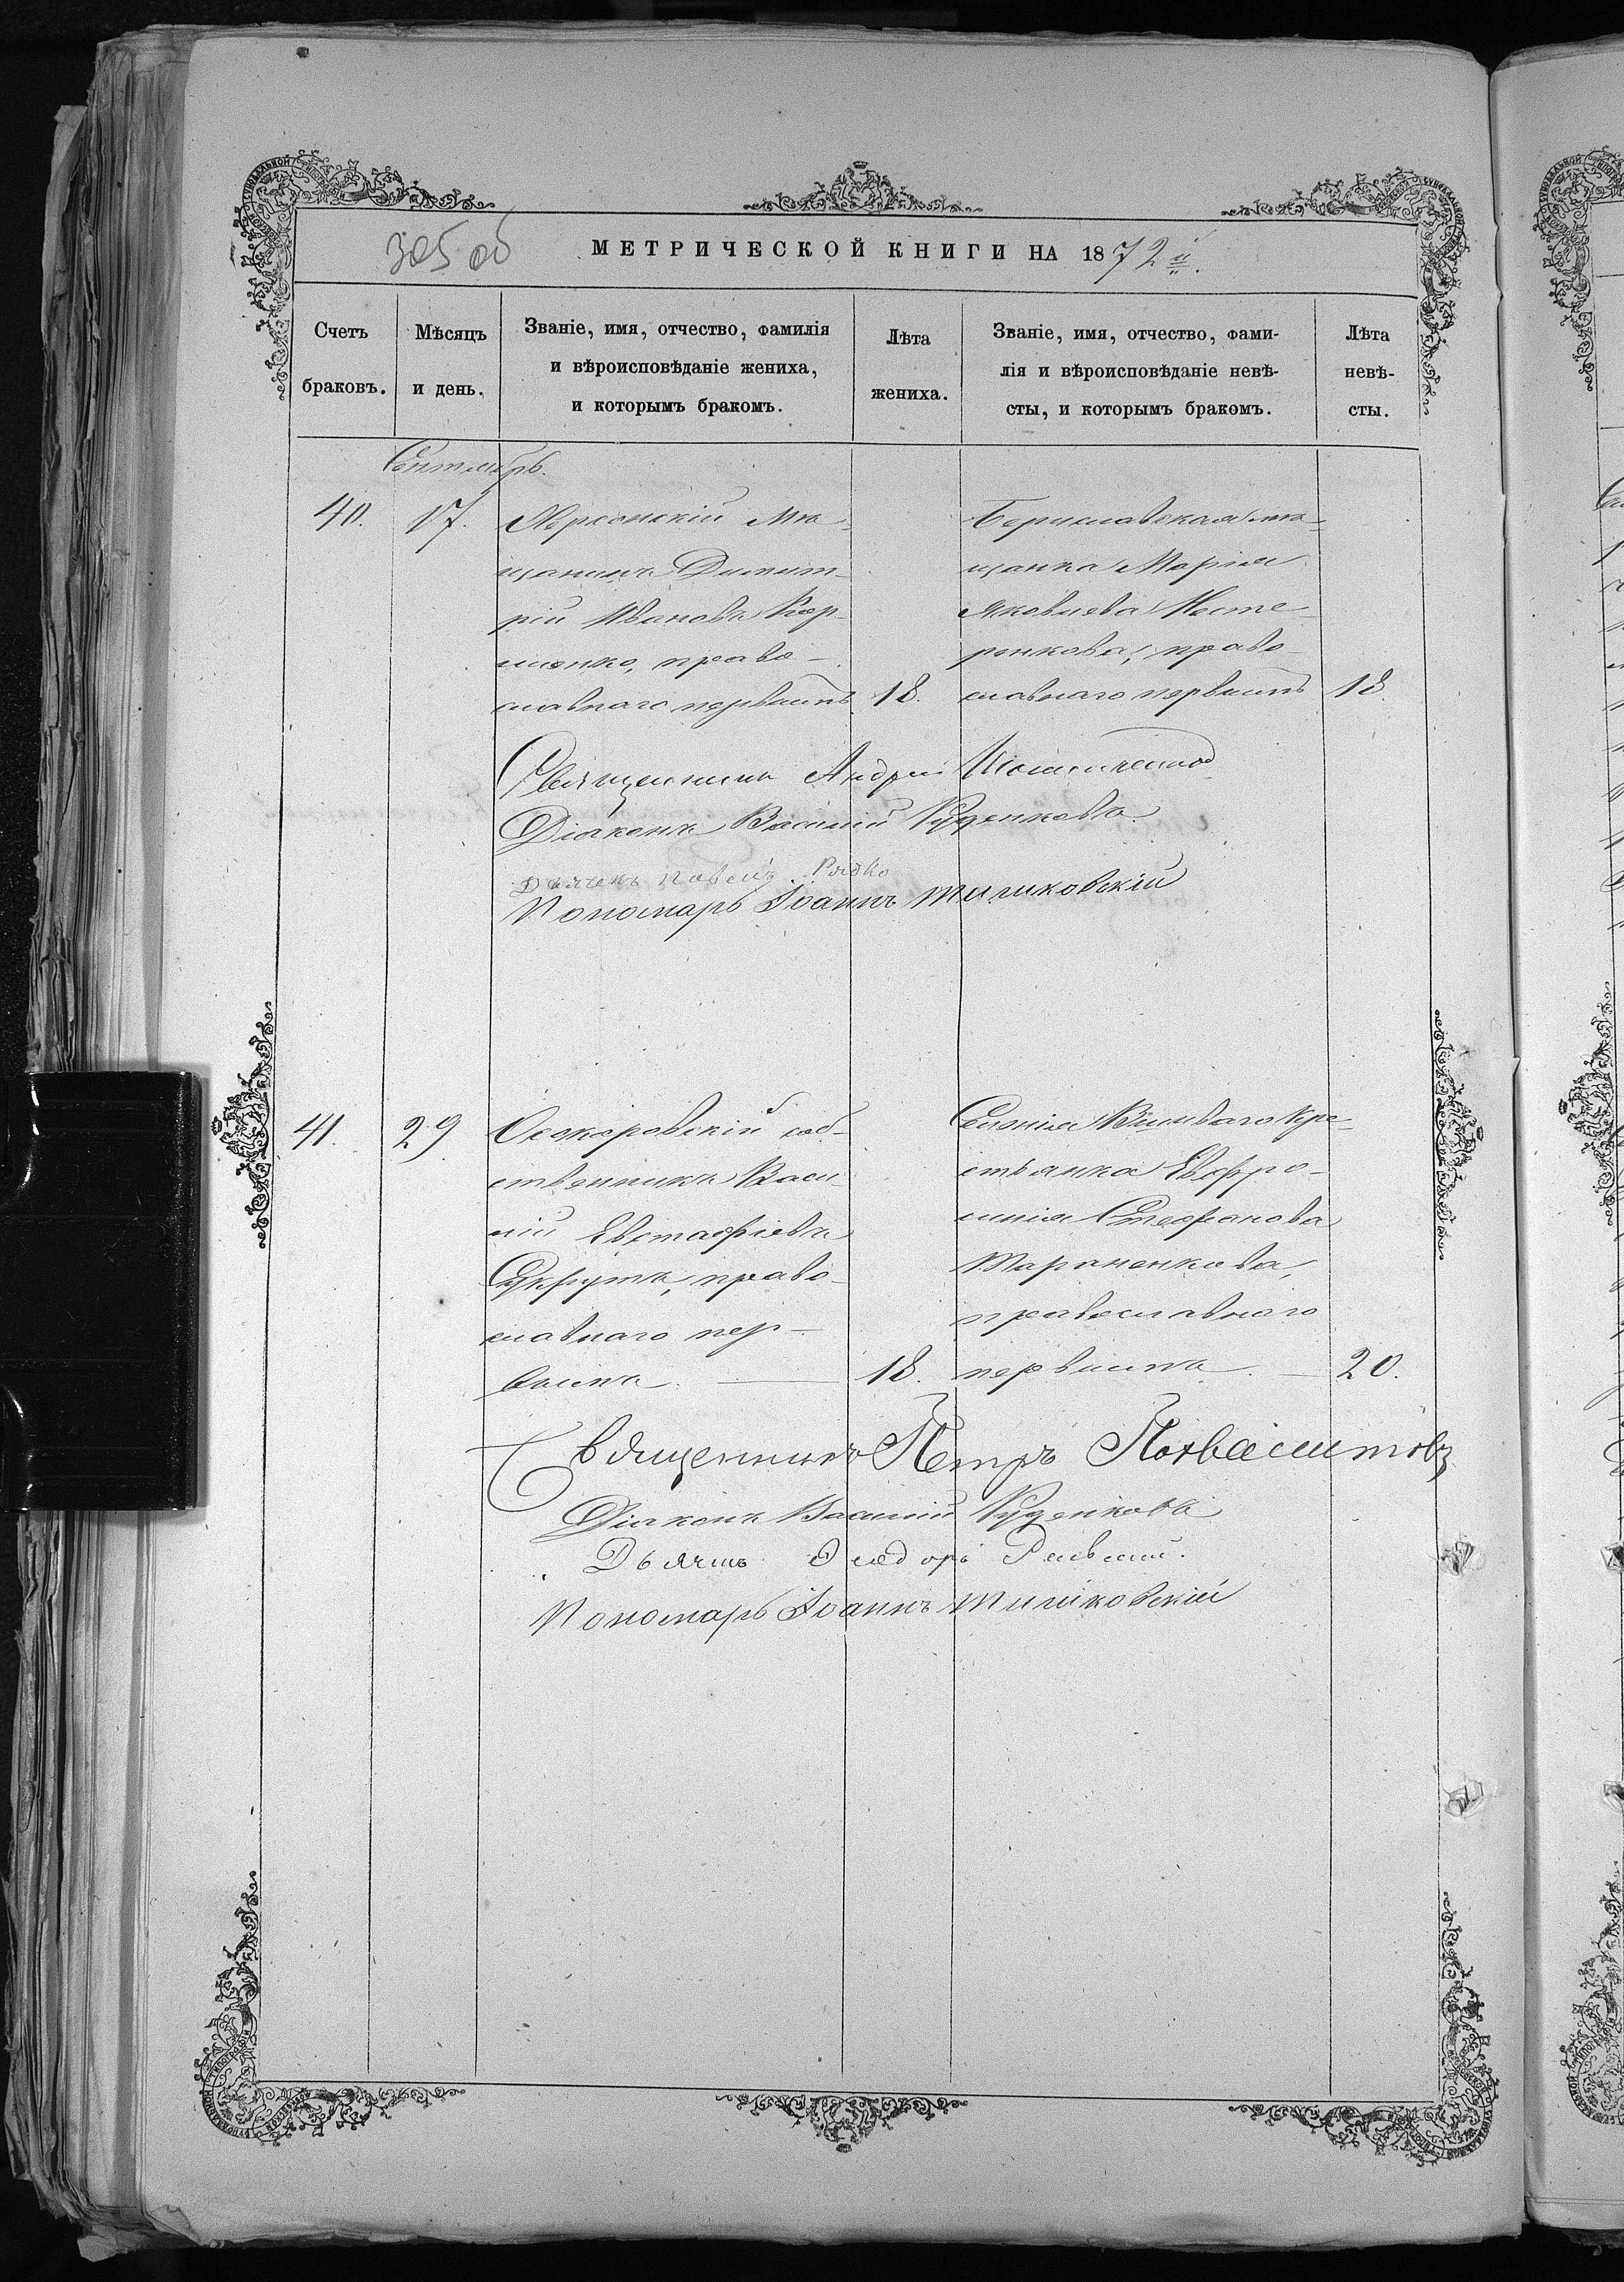 305 об
МЕТРИЧЕСКОЙ КНИГИ НА 1872й.
Счетъ браковъ.
Мѣсяцъ и день.
Званіе, имя, отчество, фамилія
и вѣроисповѣданіе жениха,
и которымъ бракомъ.
Лѣта жениха.
Званіе, имя, отчество, фами-
лія и вѣроисповѣданіе невѣ-
сты, и которымъ бракомъ.
Лѣта невѣ-
сты.
Сентябрь.
40.
17.
Херсонскій мѣ-
щанинъ Димит-
рій Ивановъ Кор-
иенко, право-
славнаго первымъ
18.
Бериславская мѣ-
щанка Марія
Яковлева Несте-
ренкова, право-
славнаго первымъ
18
Священникъ Андрей
Діаконъ Василій Руденковъ
Дьячекъ Павелъ Рядко
Пономарь Іоаннъ Тишковскій
41.
29
Осокоровскій соб-
ственникъ Васи-
лій Евстафіевъ
право-
славнаго пер-
вымъ
18.
Селенія кре-
стьянка Евфро-
синія Стефанова
Тараненкова,
православнаго
первымъ
20.
Священникъ Петръ
Діаконъ Василій Руденковъ
Дьячекъ
Пономарь Іоаннъ Тишковскій